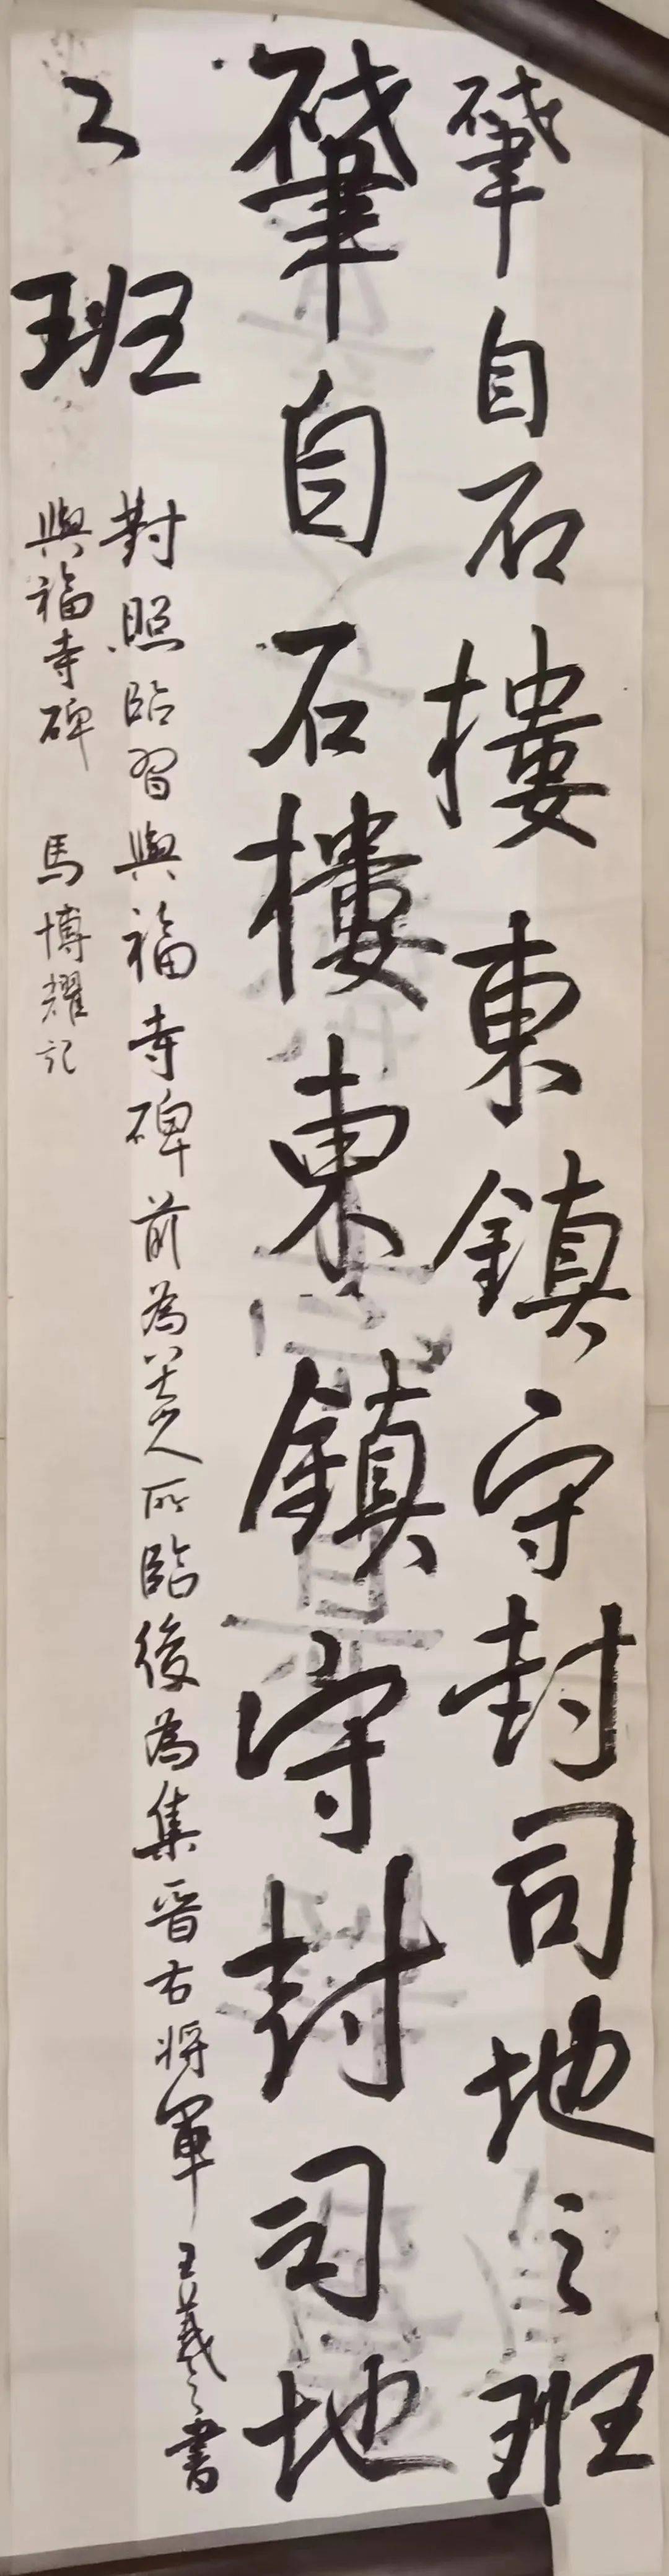 肇自石樓東鎮守封司地之班
肇自石樓東鎮守封司地
之班
對照臨習興福寺碑前為八大山人所臨後為集晉右將軍王羲之書
興福寺碑 馬博耀記